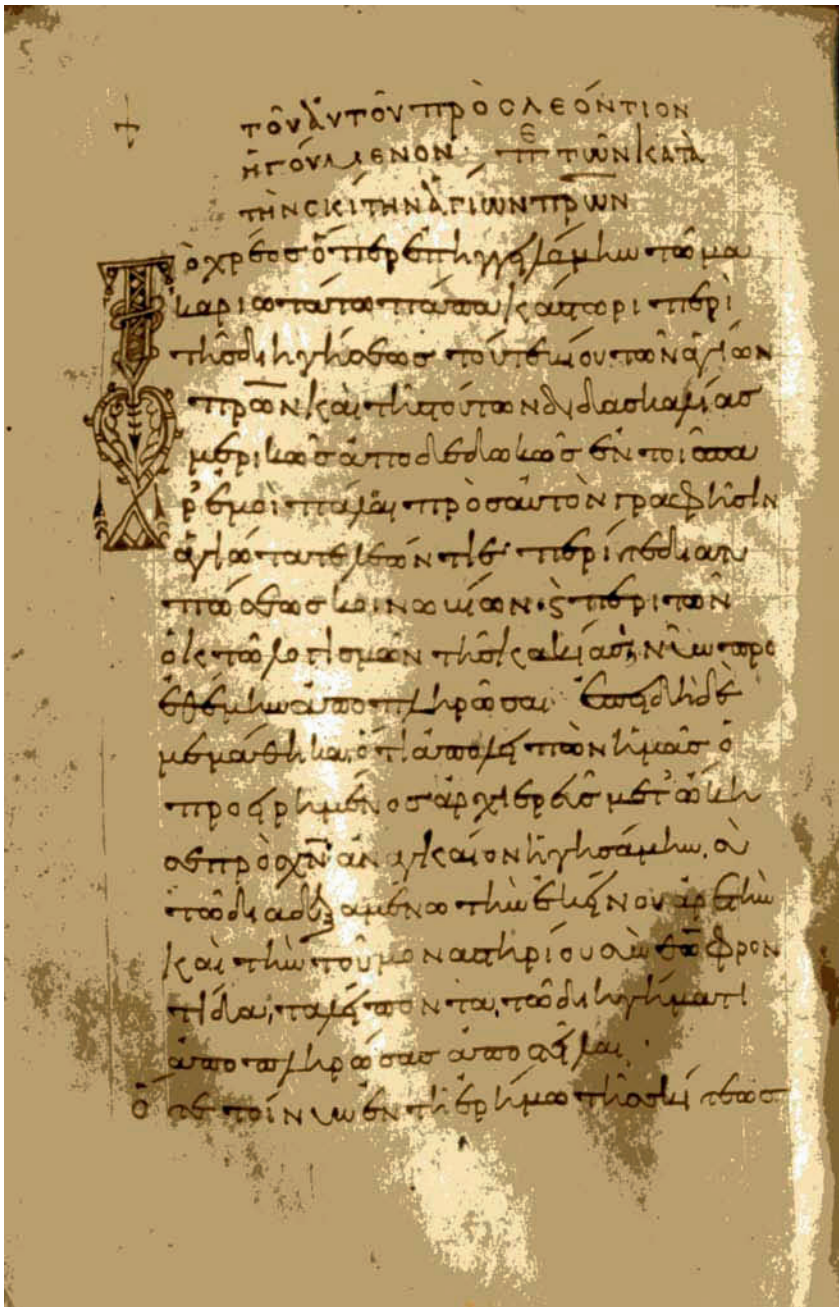 τοῦ ἀυτοῦ πρὸς λεόντιον
ἡγούμενον πε τῶν κατὰ
τὴν σκίτην ἁγίων πρων
Τὸ χρέος ὅπερ ἐπηγγειλάμην τῶ μα
καριωτάτω πάπα κάστορι περὶ
τῆς διηγήσεως τοῦ τε βίου τῶν ἁγίων
πρων καὶ τῆς τούτων διδασκαλίας
μερικῶς ἀποδεδωκὼς ἐν τοῖς πα
ρ ἐμοὶ πάλαι πρὸς αὐτὸν γραφῆσιν
ἁγιώτατε λεόντιε περί τε διατυ
πώσεως κοινωβίων· ς περὶ τῶν
ὀκτὼ λογισμῶν τῆς κακίας, νῦν προ
εθέμην ἀποπληρῶσαι ἐπειδὴ δὲ
μεμάθηκα, ὅτι ἀπολειπὼν ἡμᾶς ὁ
προειρημένος ἀρχιερεὺς μετώκη
σε πρὸ χν ἀναγκαῖον ἡγησάμην, σὺ
τῶ διαδεξαμένω τὴν ἐκείνου ἀρετὴν
καὶ τὴν τοῦ μοναστηρίου σὺν θω φρον
τίδα, τὰ λείποντα, τῶ διηγήματι
ἀποπληρώσας ἀποστεῖλαι
Ὅτε τοίνυν ἐν τῆ ἐρήμω τῆς σκίτεως